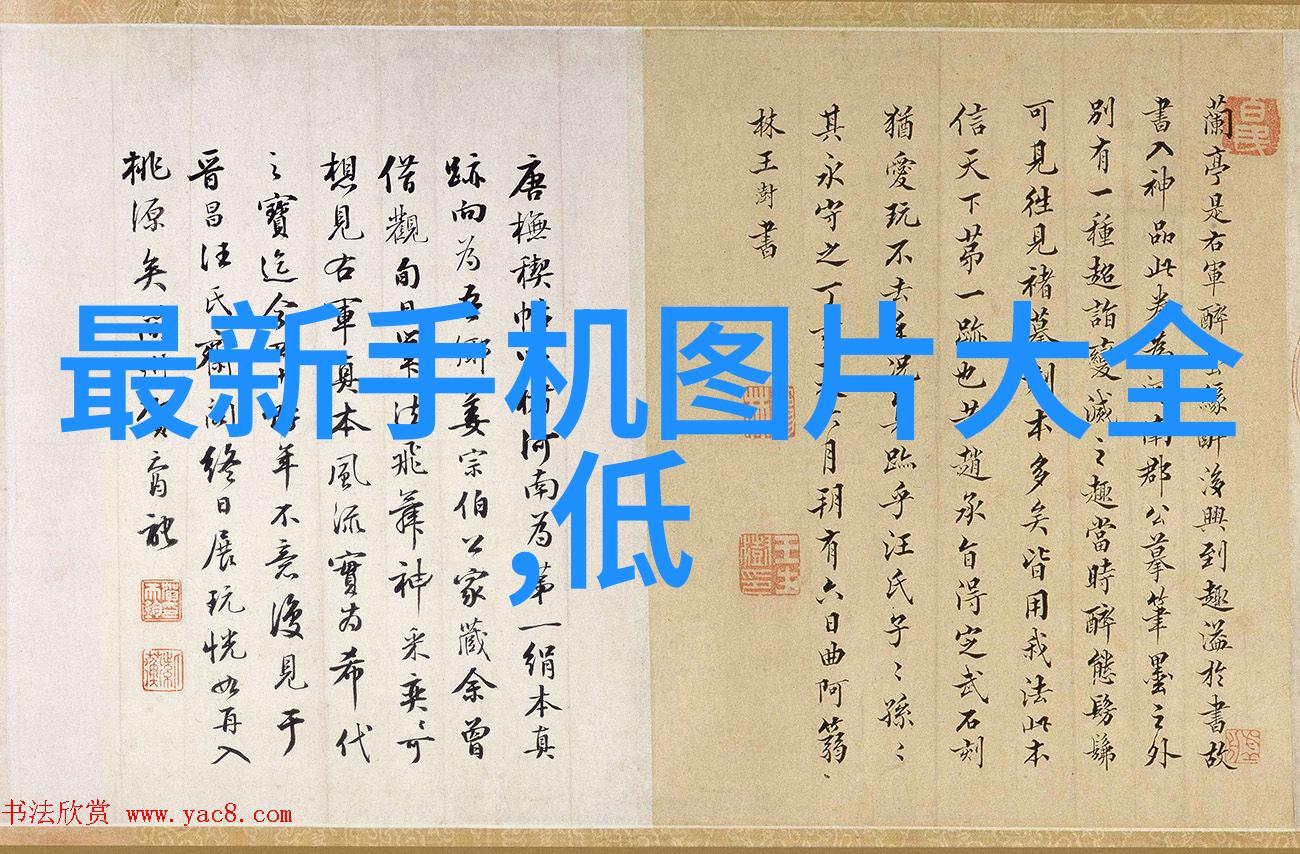 最新手机图片大全
,低
蘭亭是右軍醉緣酣後興到趣溢於書故
書入神品此卷為河南郡公摹筆墨之外
別有一種超詣變滅之趣當時醉態髣髴
可見往見褚摹刻本多矣皆用我法此本
信天下第一跡也趙承旨得定武石刻
猶愛玩不去手況跡乎汪氏子〻孫〻
其永守之丁六月朔有六日曲阿蒻〻
林王澍書
唐橅禊帖河南為第一絹本真
跡向為吾鄉姜宗伯公家藏余曾
借觀旬日筆法飛舞神采奕〻可
想見右軍真本風流實為希代
之寶迄今年不意復見于
晉昌汪氏齋閣終日展玩恍如再入
桃源矣
书法欣赏 www.yac8.com